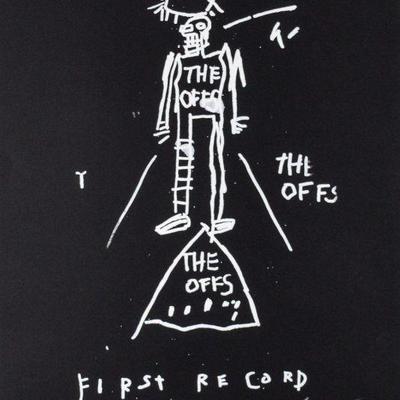 THE
OFFS
THE
OFFS
T
THE
OFFS
FIRST RECORD